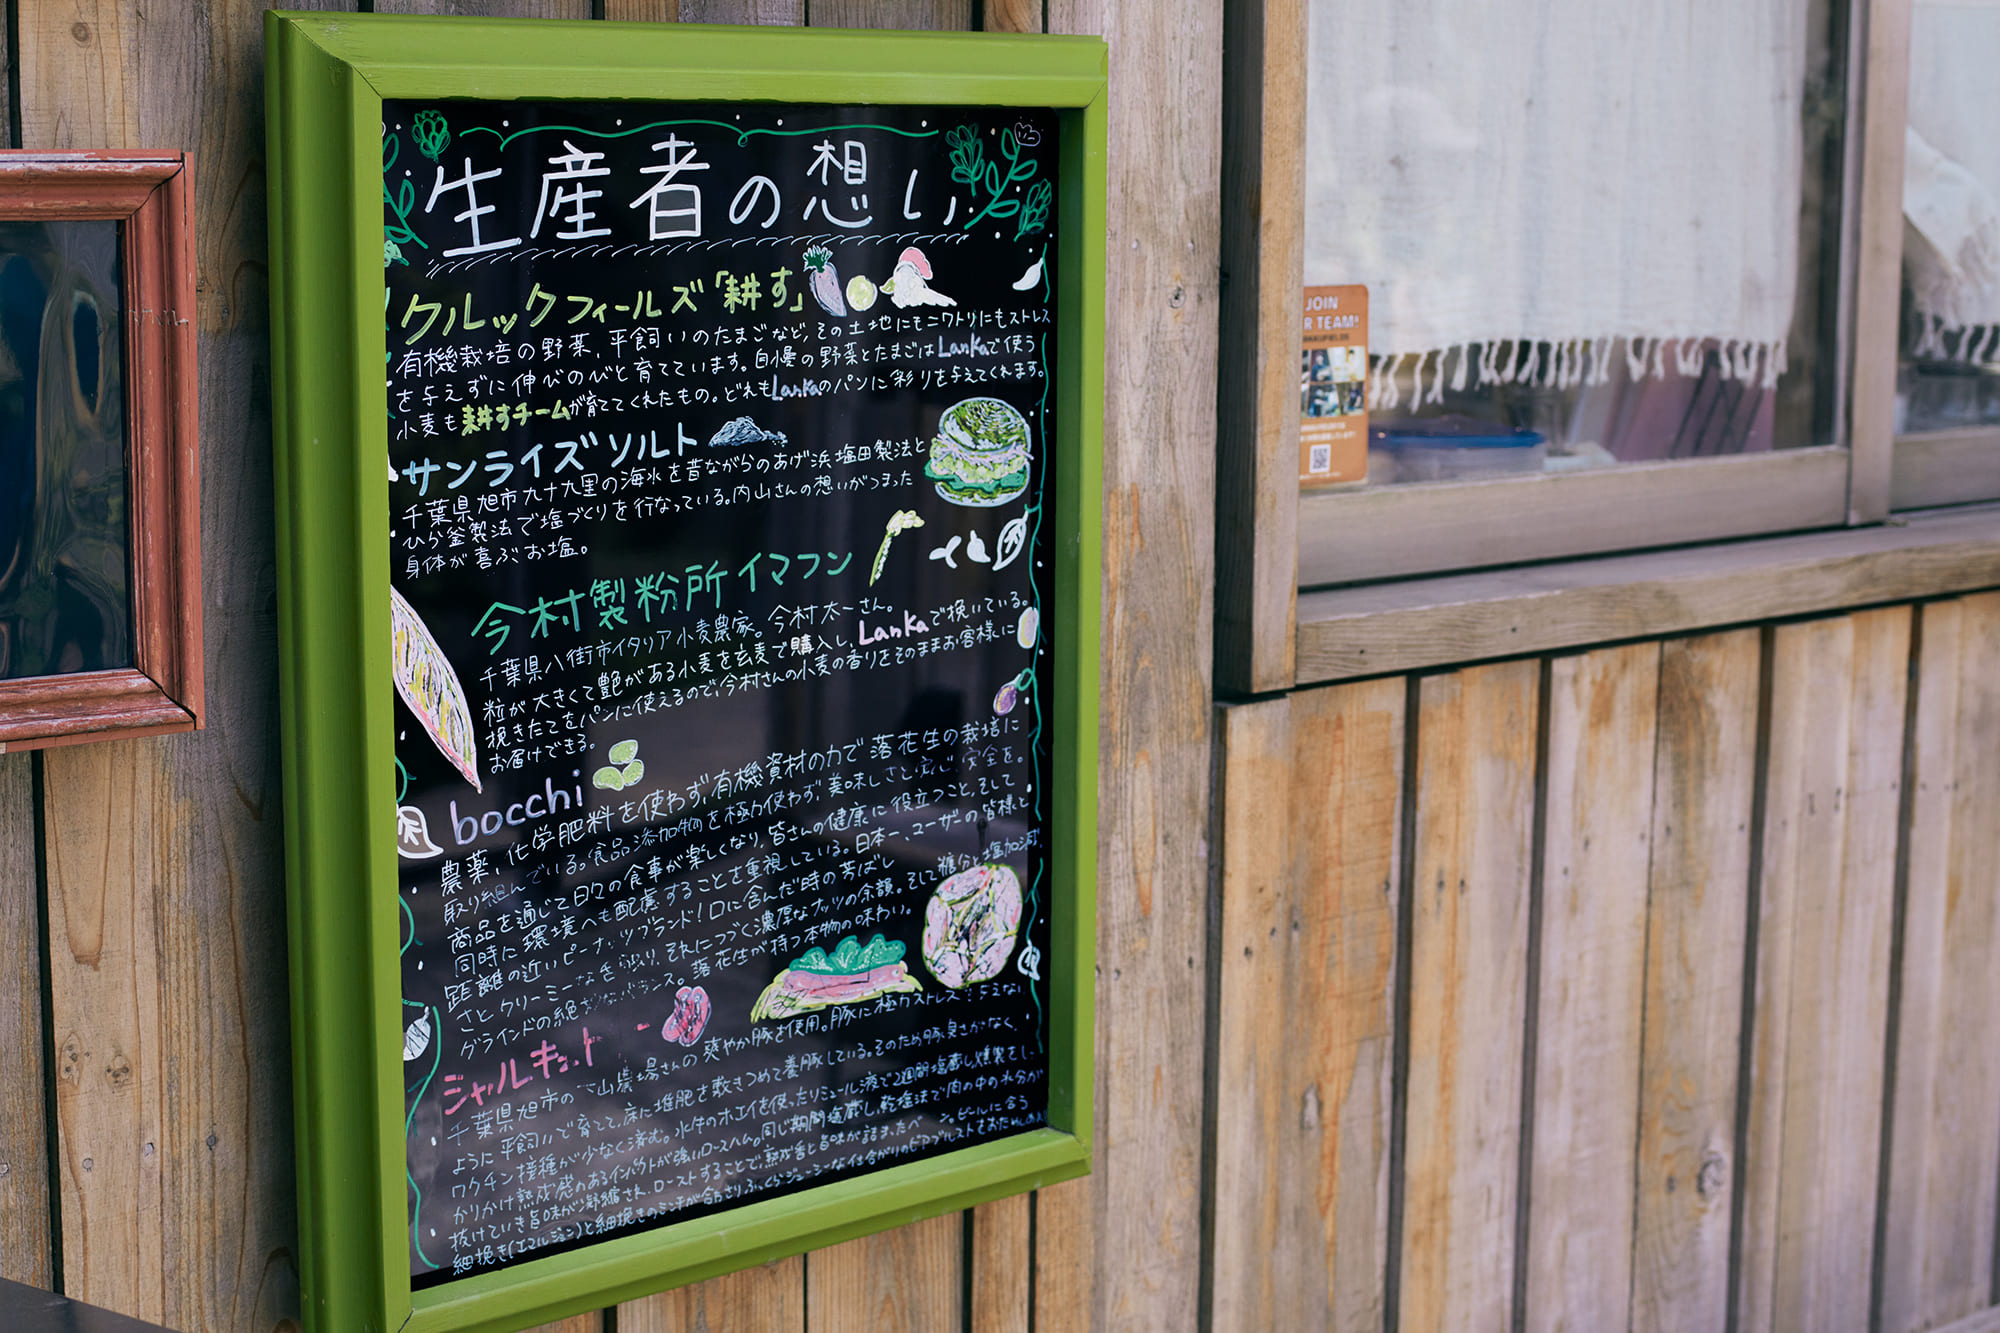 生産者の想い
クルックフィールズ「耕す」
有機栽培の野菜、平飼いのたまごなど、その土地にもニワトリにもストレス
を与えずに伸びのびと育てています。自慢の野菜とたまごはLankaで使う
小麦も耕すチームが育ててくれたもの。どれもLankaのパンに彩りを与えてくれます。
サンライズソルト
千葉県旭市九十九里の海水を昔ながらのあげ浜塩田製法と
ひら釜製法で塩づくりを行なっている。内山さんの想いがつまった
身体が喜ぶお塩。
今村製粉所イマフン
千葉県八街市イタリア小麦農家。今村太一さん。
粒が大きくて艶がある小麦を玄麦で購入し、Lankaで挽いている。
挽きたてをパンに使えるので、今村さんの小麦の香りをそのままお客様に
お届けできる。
bocchi
農薬、化学肥料を使わず、有機資材の力で落花生の栽培に
取り組んでいる。食品添加物を極力使わず、美味しさと安心、安全を。
商品を通じて日々の食事が楽しくなり、皆さんの健康に役立つこと、そして
同時に環境へも配慮することを重視している。日本一、ユーザーの皆様と
距離の近いピーナッツブランド!口に含んだ時の芳ばし
さとクリーミーな舌触り、それにつづく濃厚なナッツの余韻。そして糖分と塩加減、
グラインドの絶妙なバランス。落花生が持つ本物の味わい。
シャルキュトリー
千葉県旭市の 山農場さんの爽やか豚を使用。豚に極力ストレスを与えない
ように平飼いで育て、床に堆肥を敷きつめて養豚している。そのため豚臭さがなく、
ワクチン接種が少なく済む。水牛のホエイを使ったソミュール液で2週間塩蔵し、燻製をし、
かりかけ熟成感のあるインパクトが強いロースハム。同じ期間塩蔵し、乾塩法で肉の中の水分が
抜けていき旨味が凝縮され、ローストすることで、熟成香と旨味が詰まったベーコン。ビールに合う
細挽き(エマルジョン)と細挽きのミンチが合わさり、ふっくらジューシーな仕上がりのビアブルストをおためし
JOIN
R TEAM!